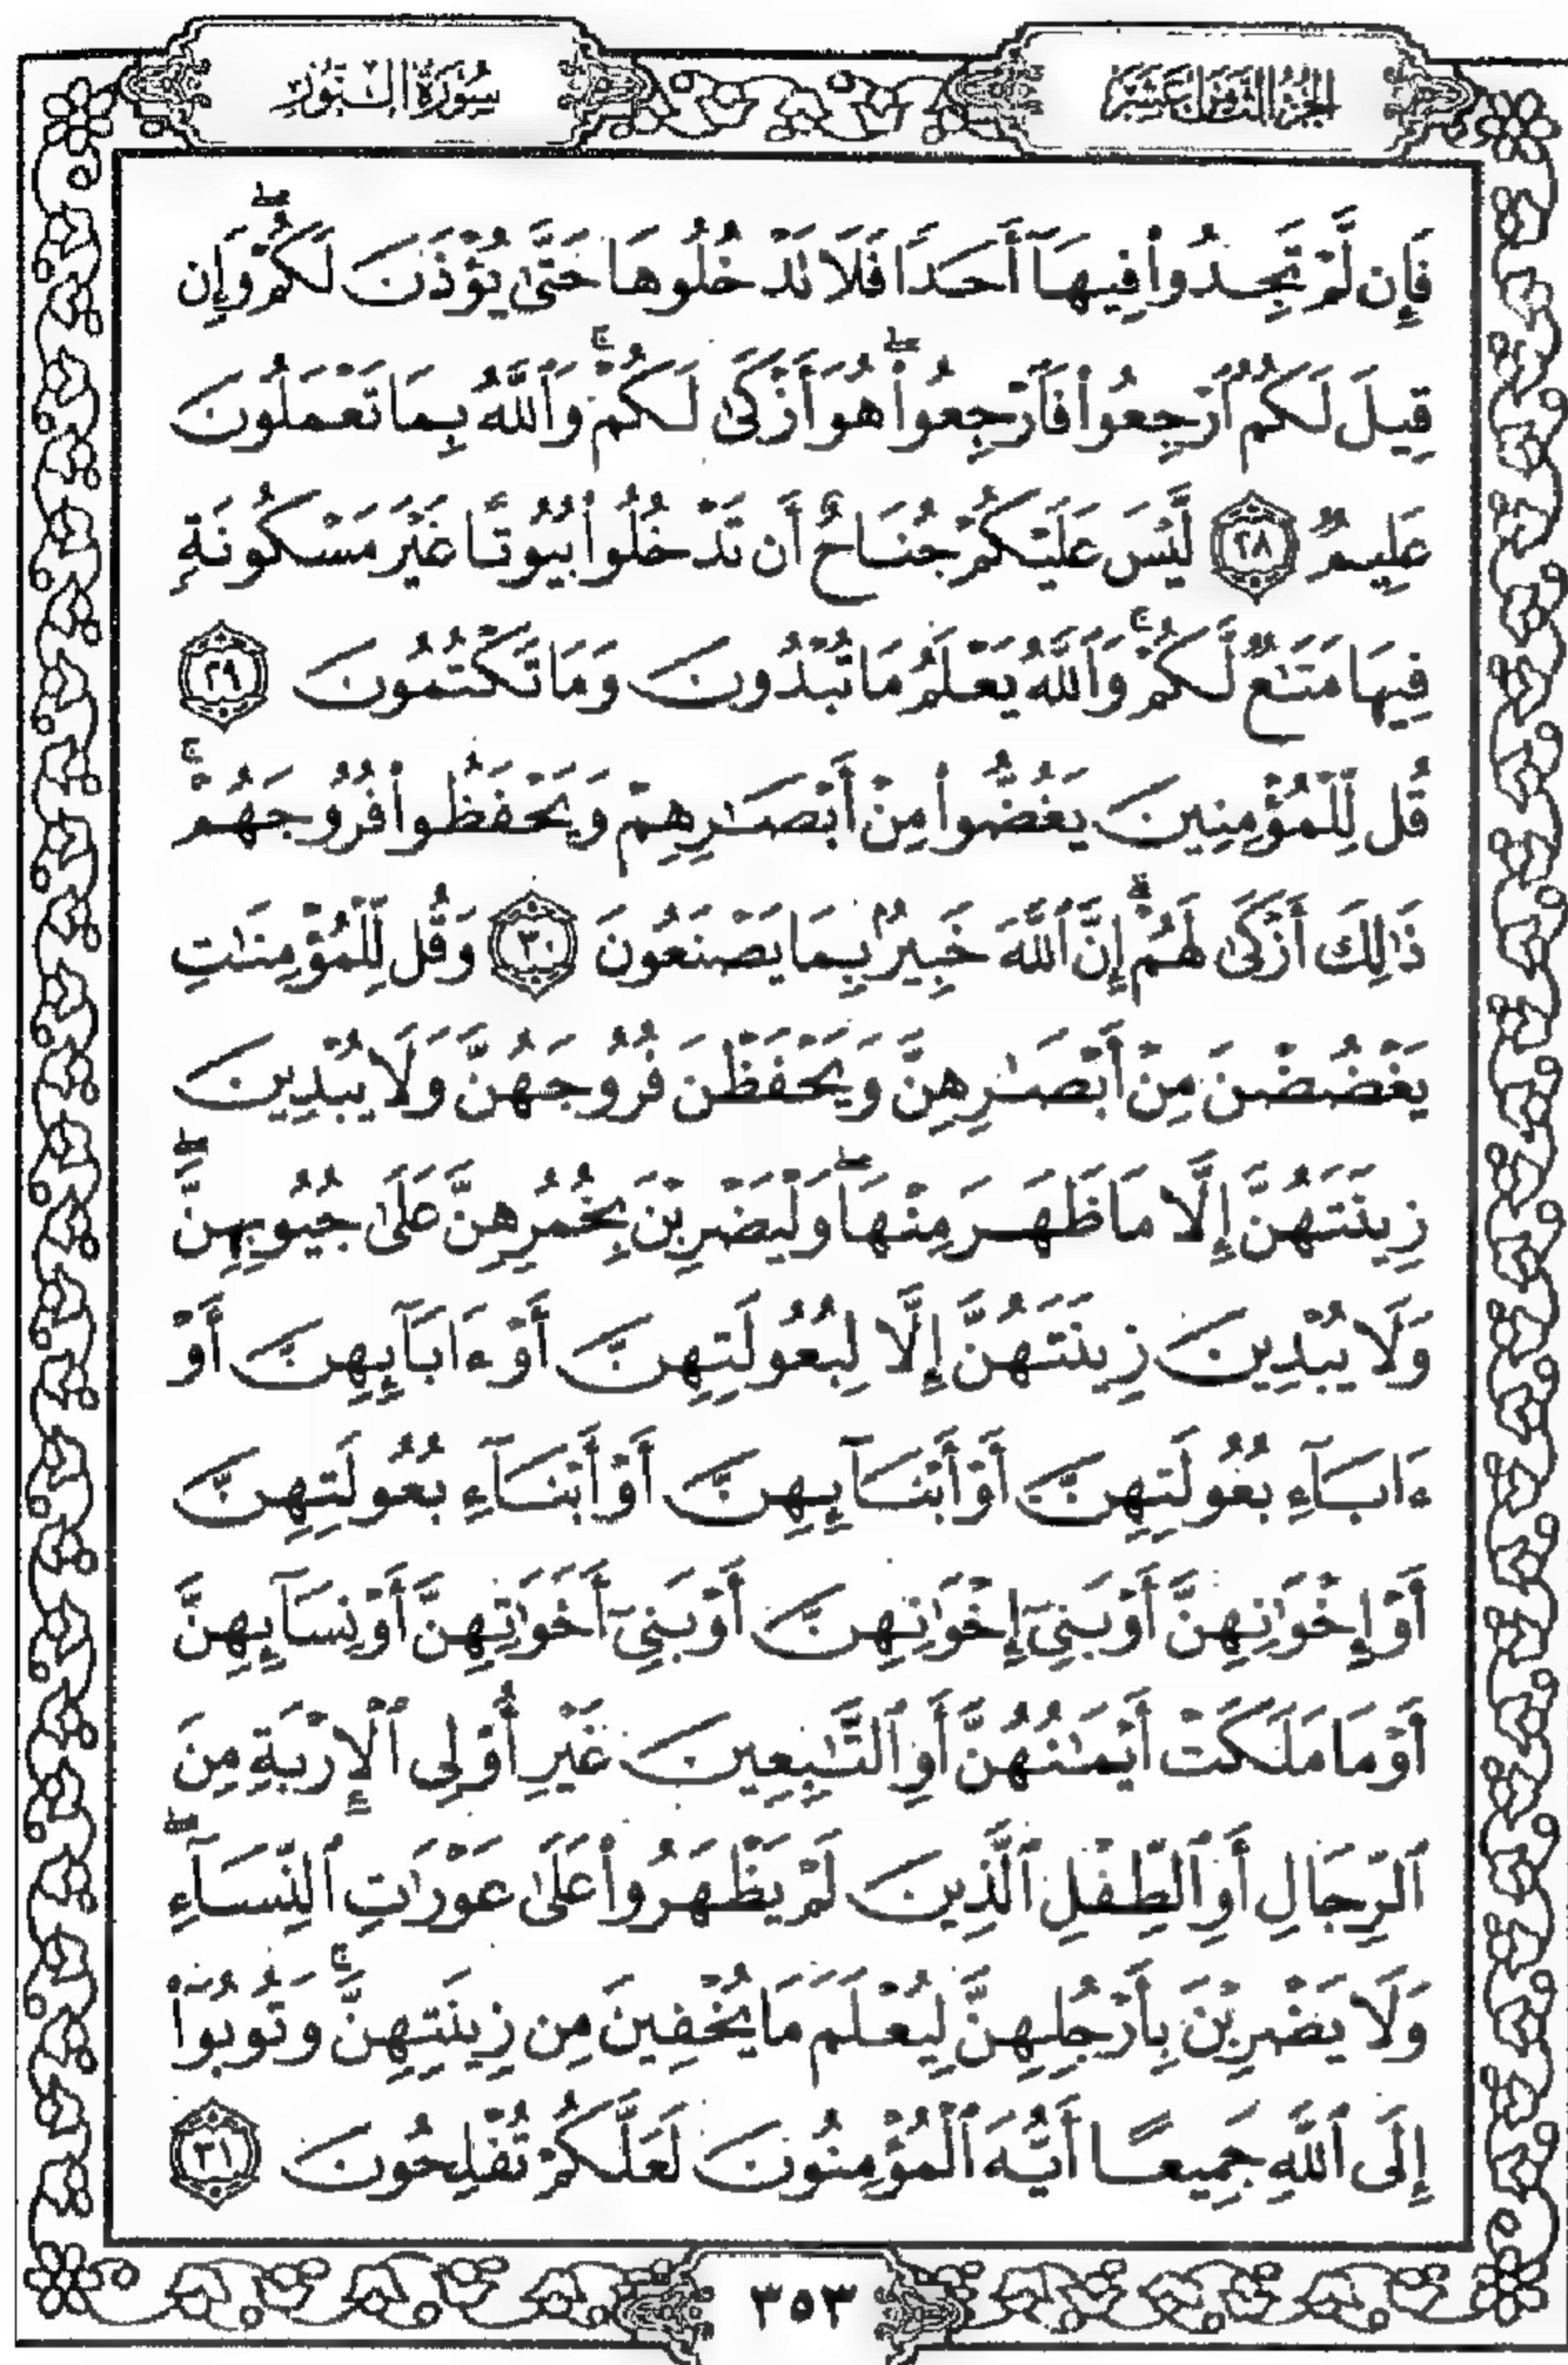 الجزء الثامن عشر
سورة النور
فَإِن لَّمْ تَجِدُوا۟ فِيهَآ أَحَدًا فَلَا تَدْخُلُوهَا حَتَّىٰ يُؤْذَنَ لَكُمْ ۖ وَإِن
قِيلَ لَكُمُ ٱرْجِعُوا۟ فَٱرْجِعُوا۟ ۖ هُوَ أَزْكَىٰ لَكُمْ ۚ وَٱللَّهُ بِمَا تَعْمَلُونَ
عَلِيمٌ ٢٨ لَّيْسَ عَلَيْكُمْ جُنَاحٌ أَن تَدْخُلُوا۟ بُيُوتًا غَيْرَ مَسْكُونَةٍ
فِيهَا مَتَـٰعٌ لَّكُمْ ۚ وَٱللَّهُ يَعْلَمُ مَا تُبْدُونَ وَمَا تَكْتُمُونَ ٢٩
قُل لِّلْمُؤْمِنِينَ يَغُضُّوا۟ مِنْ أَبْصَـٰرِهِمْ وَيَحْفَظُوا۟ فُرُوجَهُمْ ۚ
ذَٰلِكَ أَزْكَىٰ لَهُمْ ۗ إِنَّ ٱللَّهَ خَبِيرٌۢ بِمَا يَصْنَعُونَ ٣٠ وَقُل لِّلْمُؤْمِنَـٰتِ
يَغْضُضْنَ مِنْ أَبْصَـٰرِهِنَّ وَيَحْفَظْنَ فُرُوجَهُنَّ وَلَا يُبْدِينَ
زِينَتَهُنَّ إِلَّا مَا ظَهَرَ مِنْهَا ۖ وَلْيَضْرِبْنَ بِخُمُرِهِنَّ عَلَىٰ جُيُوبِهِنَّ ۖ
وَلَا يُبْدِينَ زِينَتَهُنَّ إِلَّا لِبُعُولَتِهِنَّ أَوْ ءَابَآئِهِنَّ أَوْ
ءَابَآءِ بُعُولَتِهِنَّ أَوْ أَبْنَآئِهِنَّ أَوْ أَبْنَآءِ بُعُولَتِهِنَّ
أَوْ إِخْوَٰنِهِنَّ أَوْ بَنِىٓ إِخْوَٰنِهِنَّ أَوْ بَنِىٓ أَخَوَٰتِهِنَّ أَوْ نِسَآئِهِنَّ
أَوْ مَا مَلَكَتْ أَيْمَـٰنُهُنَّ أَوِ ٱلتَّـٰبِعِينَ غَيْرِ أُو۟لِى ٱلْإِرْبَةِ مِنَ
ٱلرِّجَالِ أَوِ ٱلطِّفْلِ ٱلَّذِينَ لَمْ يَظْهَرُوا۟ عَلَىٰ عَوْرَٰتِ ٱلنِّسَآءِ ۖ
وَلَا يَضْرِبْنَ بِأَرْجُلِهِنَّ لِيُعْلَمَ مَا يُخْفِينَ مِن زِينَتِهِنَّ ۚ وَتُوبُوٓا۟
إِلَى ٱللَّهِ جَمِيعًا أَيُّهَ ٱلْمُؤْمِنُونَ لَعَلَّكُمْ تُفْلِحُونَ ٣١
٣٥٣